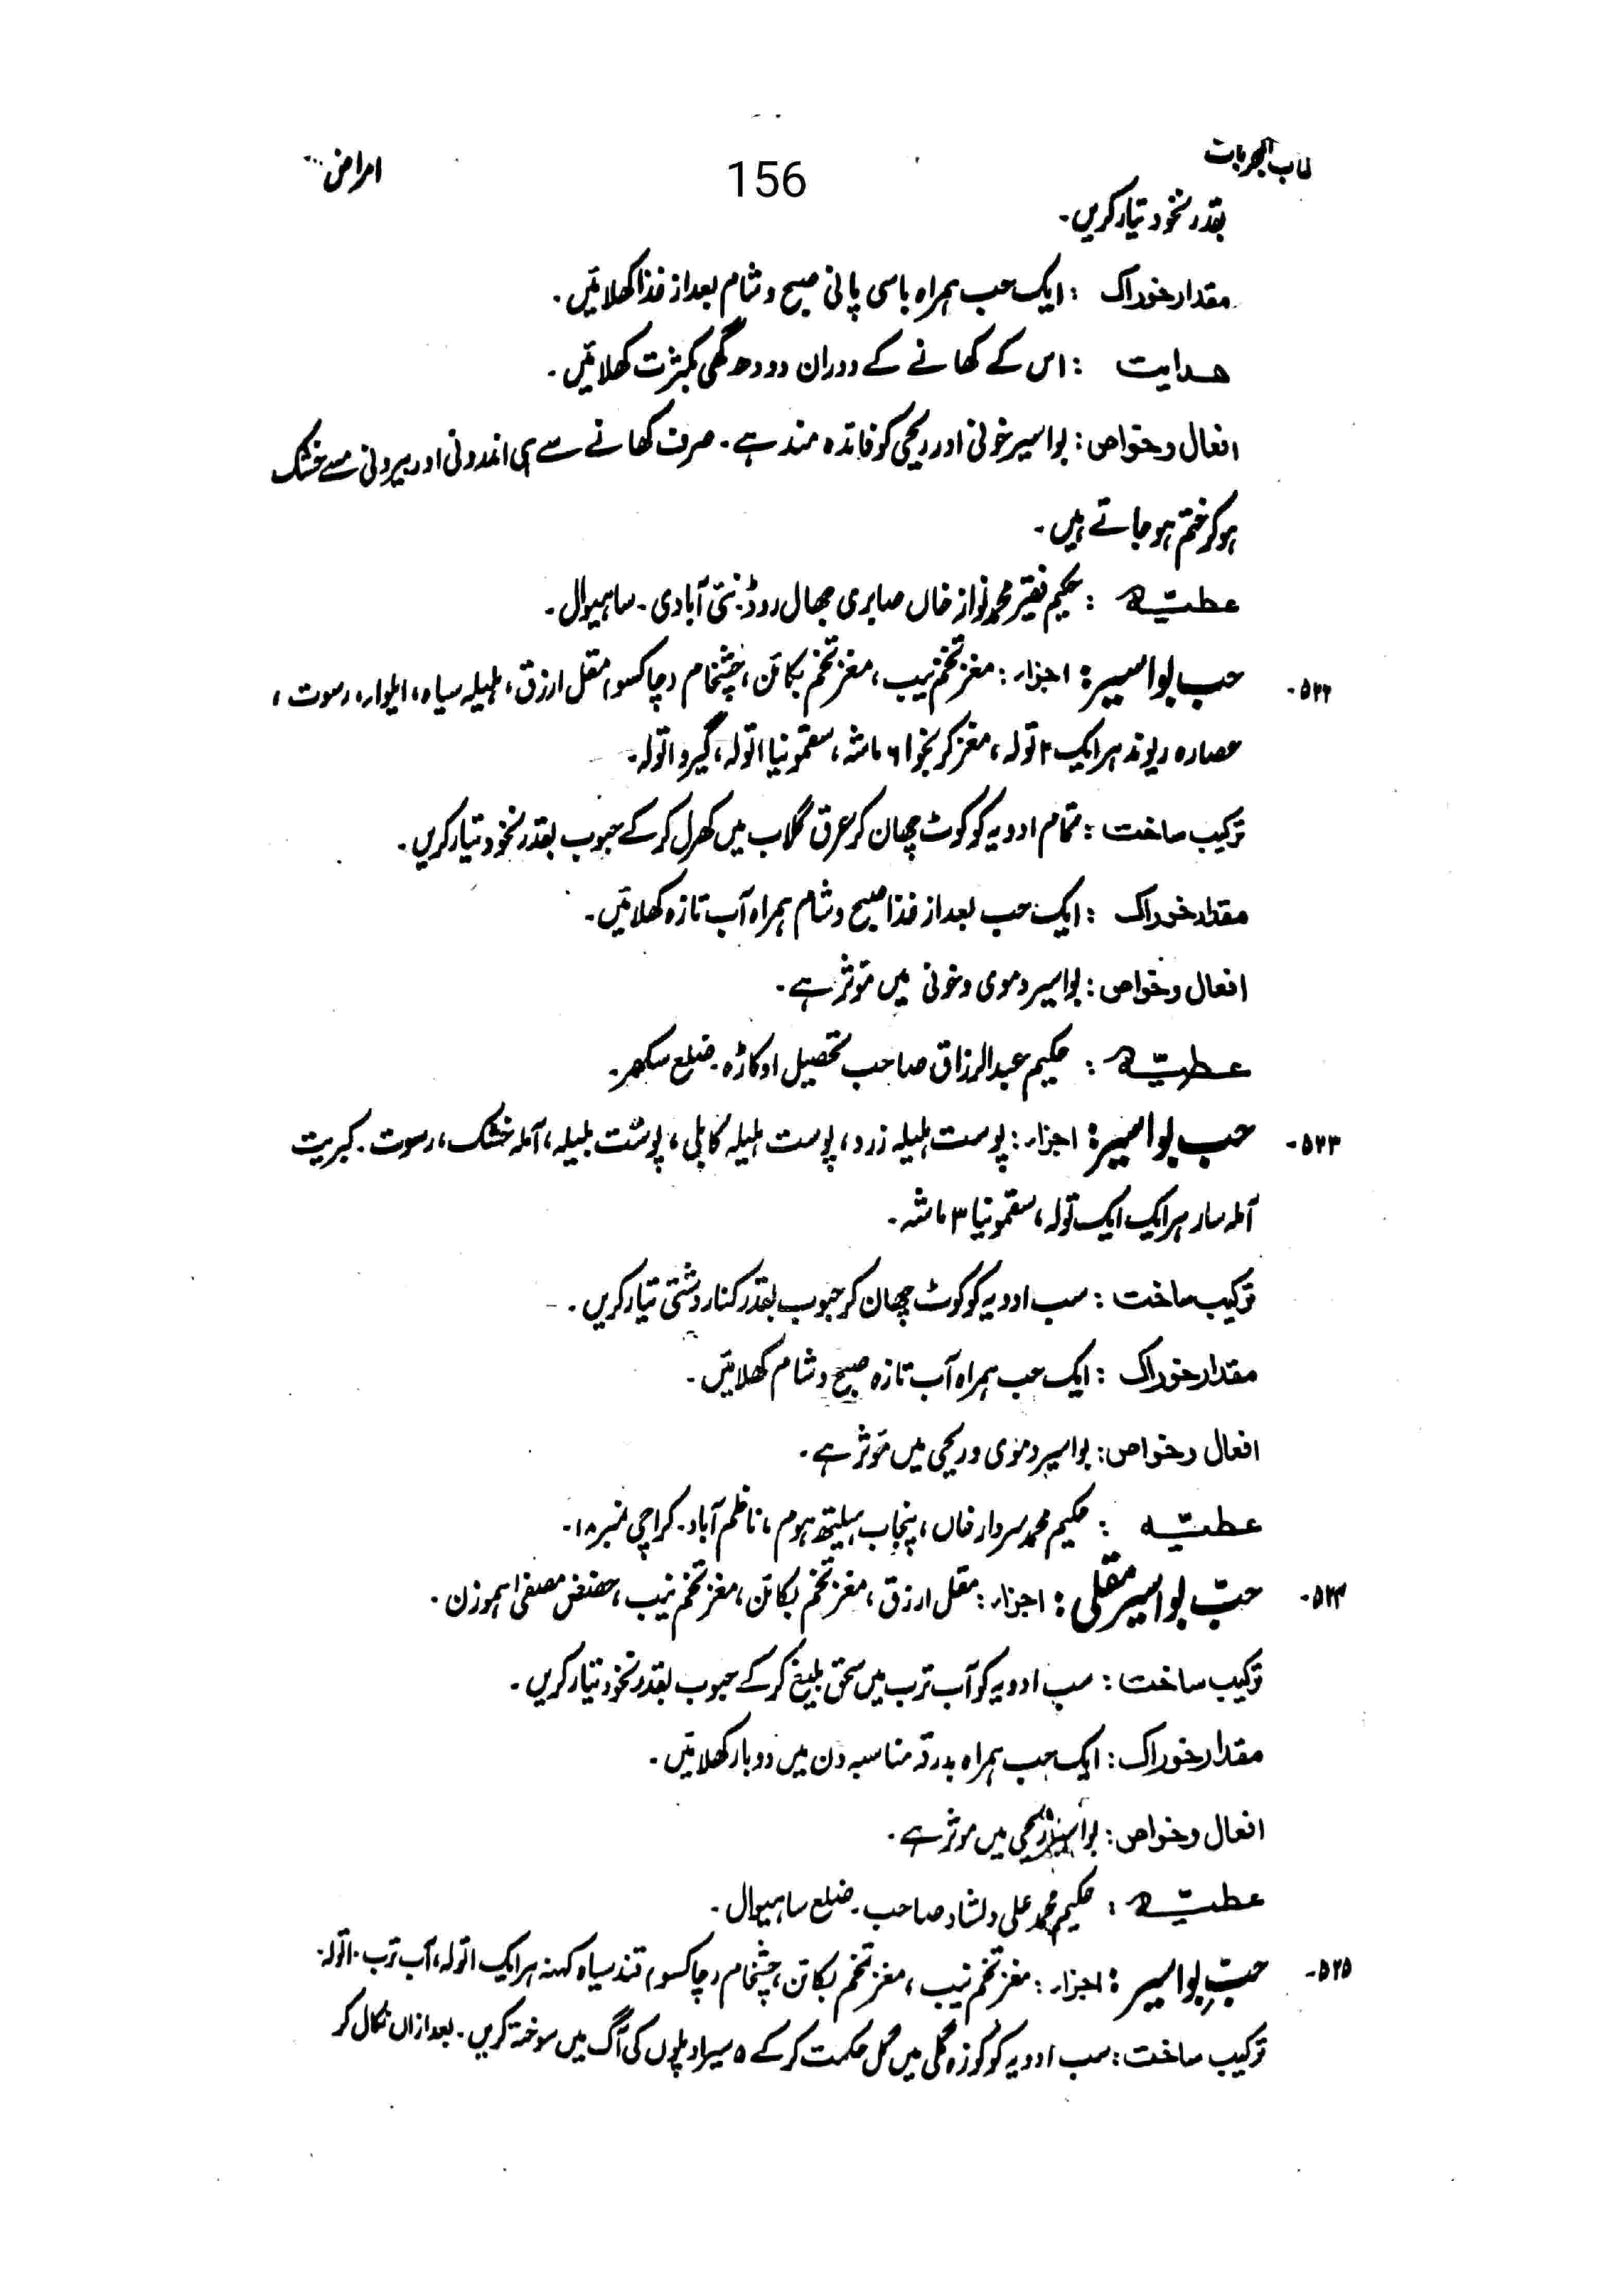 کتاب المجربات 156 امراض
بقدر نخود تیار کریں۔
مقدار خوراک : ایک حب ہمراہ باسی پانی صبح و شام بعد از غذا کھلائیں۔
ھدایت : اس کے کھانے کے دوران دودھ گھی بکثرت کھلائیں۔
افعال و خواص : بواسیر خونی اور ریحی کو فائدہ مند ہے۔ صرف کھانے سے ہی اندرونی اور بیرونی مسے خشک
ہو کر ختم ہو جاتے ہیں۔
عطیّہ : حکیم فقیر محمد نواز خاں صابری جھال روڈ۔ نئی آبادی۔ ساہیوال۔
۵۲۲۔ حب بواسیر : اجزاء : مغز تخم نیب، مغز تخم بکائن، چشخام (چاکسو) مقل ارزق، ہلیلہ سیاہ، ایلوا، رسوت،
عصارہ ریوند ہر ایک ۲ تولہ، مغز کرنجوا ۶ ماشہ، سقمونیا ۱ تولہ، گیرو ۱ تولہ۔
ترکیب ساخت : تمام ادویہ کو کوٹ چھان کر عرق گلاب میں کھرل کر کے حبوب بقدر نخود تیار کریں۔
مقدار خوراک : ایک حب بعد از غذا صبح و شام ہمراہ آب تازہ کھلائیں۔
افعال و خواص : بواسیر دموی و خونی میں مؤثر ہے۔
عطیّہ : حکیم عبدالرزاق صاحب تحصیل اوکاڑہ۔ ضلع سکھر۔
۵۲۳۔ حب بواسیر : اجزاء : پوست ہلیلہ زرد، پوست ہلیلہ کابلی، پوست بلیلہ، آملہ خشک، رسوت۔ کبریت
آملہ سار ہر ایک ایک تولہ، سقمونیا ۳ ماشہ۔
ترکیب ساخت : سب ادویہ کو کوٹ چھان کر حبوب بقدر کنار دشتی تیار کریں۔
مقدار خوراک : ایک حب ہمراہ آب تازہ صبح و شام کھلائیں۔
افعال و خواص : بواسیر دموی و ریحی میں مؤثر ہے۔
عطیّہ : حکیم محمد سردار خاں، پنجاب ہیلتھ ہوم، ناظم آباد۔ کراچی نمبر ۱۸۔
۵۲۴۔ حبّ بواسیر مقلی : اجزاء : مقل ارزق، مغز تخم بکائن، مغز تخم نیب، حضض مصفیٰ ہموزن۔
ترکیب ساخت : سب ادویہ کو آب ترب میں سحق بلیغ کر کے حبوب بقدر نخود تیار کریں۔
مقدار خوراک : ایک حب ہمراہ بدرقہ مناسبہ دن میں دو بار کھلائیں۔
افعال و خواص : بواسیر ریحی میں موثر ہے۔
عطیّہ : حکیم محمد علی دلشاد صاحب۔ ضلع ساہیوال۔
۵۲۵۔ حبّ بواسیر : اجزاء : مغز تخم نیب، مغز تخم بکائن، چشخام (چاکسو) قند سیاہ کہنہ ہر ایک ۱ تولہ، آب ترب ۱۰ تولہ۔
ترکیب ساخت : سب ادویہ کو کوزہ گلی میں گل حکمت کر کے ۵ سیر اوپلوں کی آگ میں سوختہ کریں۔ بعد ازاں نکال کر